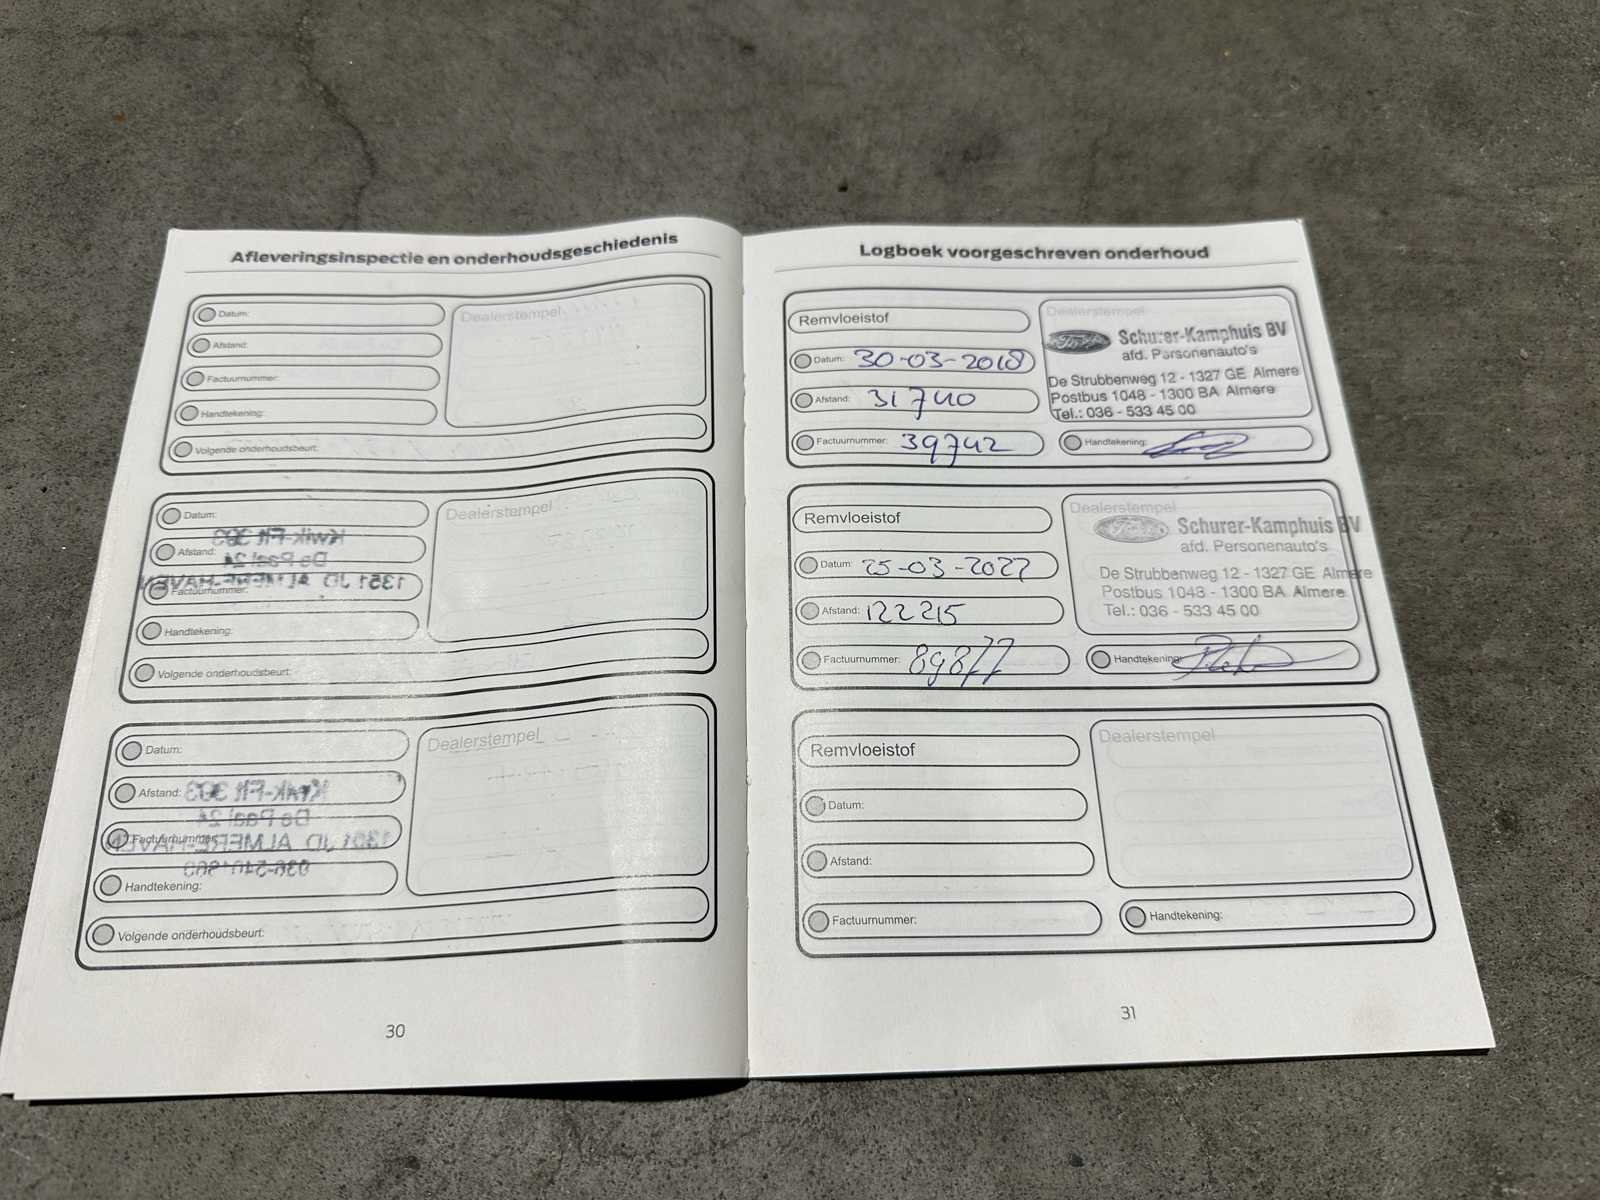 Afleveringsinspectie en onderhoudsgeschiedenis
Datum:
Dealerstempel
Afstand:
Factuurnummer:
Handtekening:
Volgende onderhoudsbeurt:
Datum:
Dealerstempel
Kwik-Fit 393
Afstand:
De Paal 24
1351 JD ALMERE-HAVEN
Factuurnummer:
Handtekening:
Volgende onderhoudsbeurt:
Datum:
Dealerstempel
Afstand:
Kwik-Fit 393
De Paal 24
Factuurnummer:
1351 JD ALMERE-HAVEN
Handtekening:
Volgende onderhoudsbeurt:
30
Logboek voorgeschreven onderhoud
Remvloeistof
Dealerstempel
Ford
Schurer-Kamphuis BV
afd. Personenauto's
De Strubbenweg 12 - 1327 GE Almere
Postbus 1048 - 1300 BA Almere
Tel.: 036 - 533 45 00
Datum: 30-03-2018
Afstand: 31740
Factuurnummer: 39742
Handtekening:
Remvloeistof
Dealerstempel
Ford
Schurer-Kamphuis BV
afd. Personenauto's
De Strubbenweg 12 - 1327 GE Almere
Postbus 1048 - 1300 BA Almere
Tel.: 036 - 533 45 00
Datum: 25-03-2022
Afstand: 122215
Factuurnummer: 89877
Handtekening:
Remvloeistof
Dealerstempel
Datum:
Afstand:
Factuurnummer:
Handtekening:
31